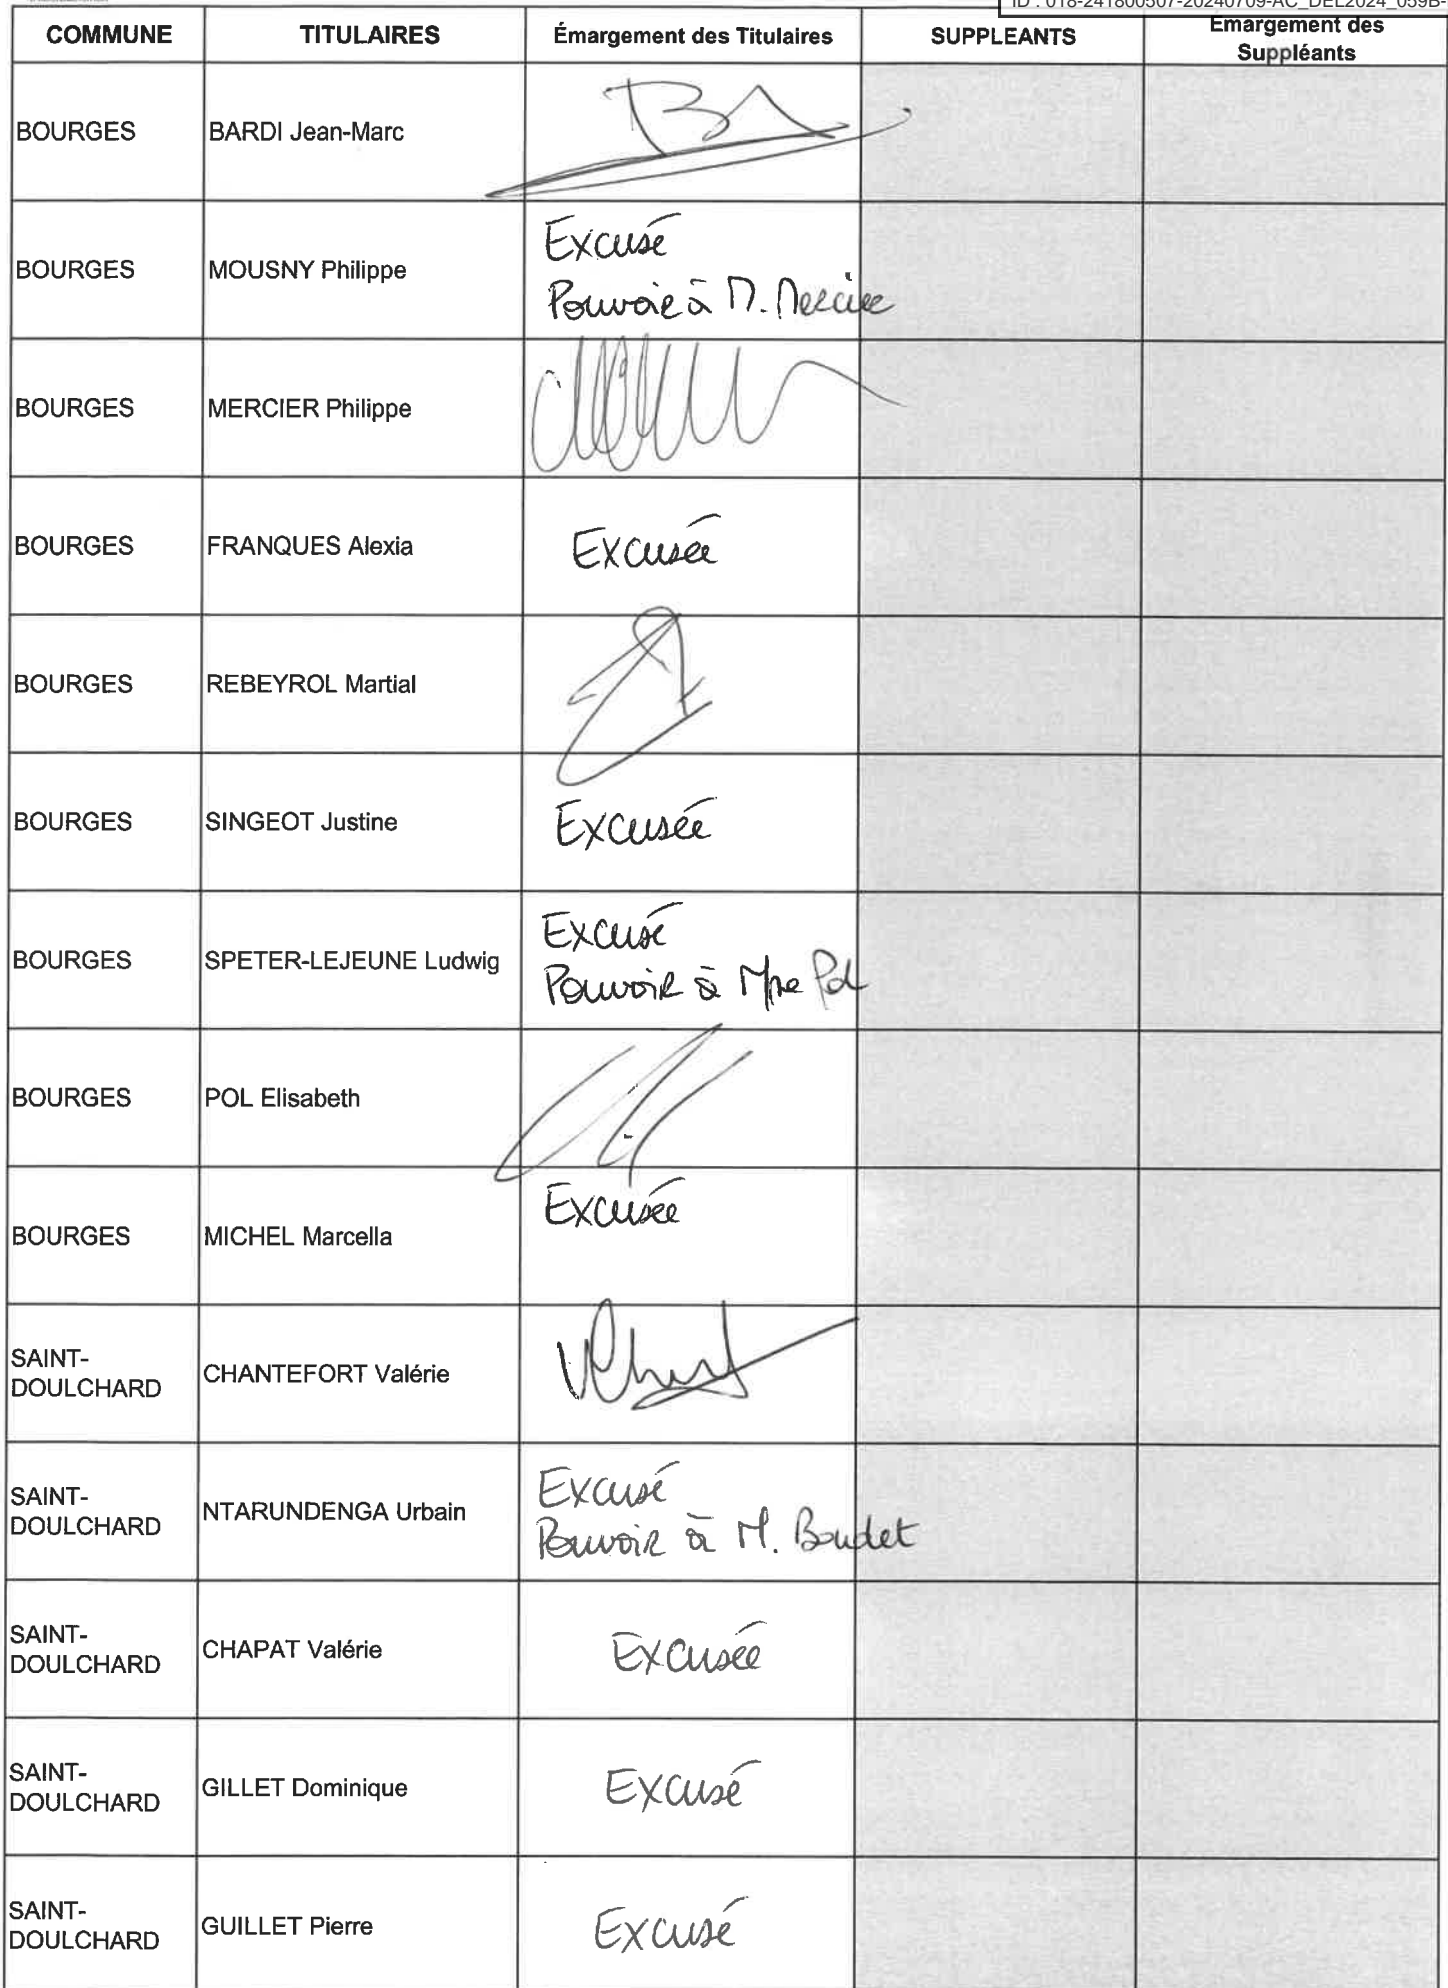 ID : 018-241800507-20240709-AC_DEL2024_059B-
COMMUNE TITULAIRES Émargement des Titulaires SUPPLEANTS Émargement des
Suppléants
BOURGES BARDI Jean-Marc
BOURGES MOUSNY Philippe Excusé
Pouvoir à M. Mercier
BOURGES MERCIER Philippe
BOURGES FRANQUES Alexia Excusée
BOURGES REBEYROL Martial
BOURGES SINGEOT Justine Excusée
BOURGES SPETER-LEJEUNE Ludwig Excusé
Pouvoir à Mme Pol
BOURGES POL Elisabeth
BOURGES MICHEL Marcella Excusée
SAINT-
DOULCHARD CHANTEFORT Valérie
SAINT-
DOULCHARD NTARUNDENGA Urbain Excusé
Pouvoir à M. Boudet
SAINT-
DOULCHARD CHAPAT Valérie Excusée
SAINT-
DOULCHARD GILLET Dominique Excusé
SAINT-
DOULCHARD GUILLET Pierre Excusé